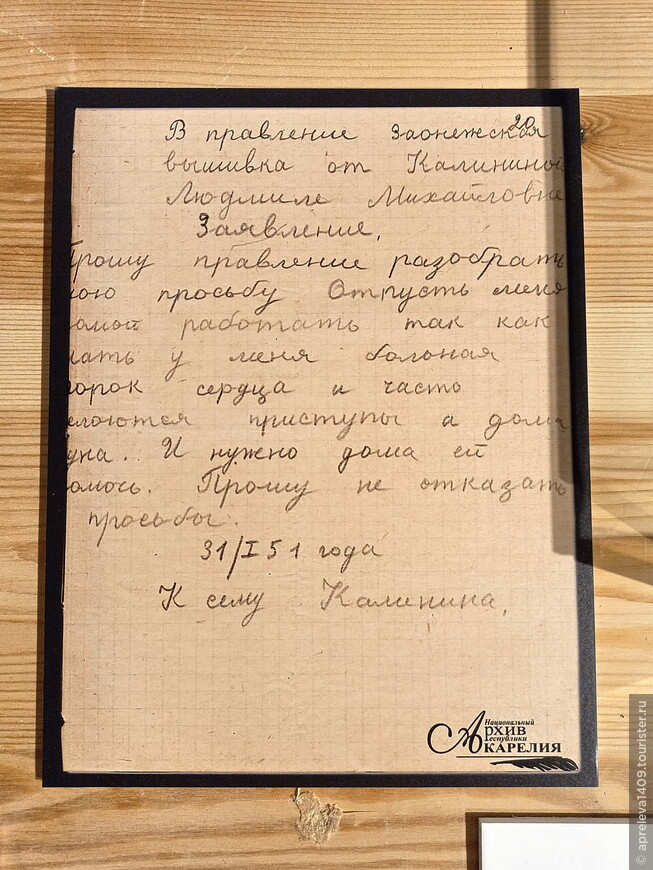 20
В правление Заонежская
вышивка от Калининой
Людмиле Михайловне
Заявление,
Прошу правление разобрать
мою просьбу Отпусть меня
домой работать так как
мать у меня болоная
порок сердца и часто
приступы а дома
И нужно дома ей
помочь. Прошу не отказать
просьбы.
31/I 51 года
К сему Калинина,
Национальный
Архив
Республики
Карелия
© apreleva1409.tourister.ru